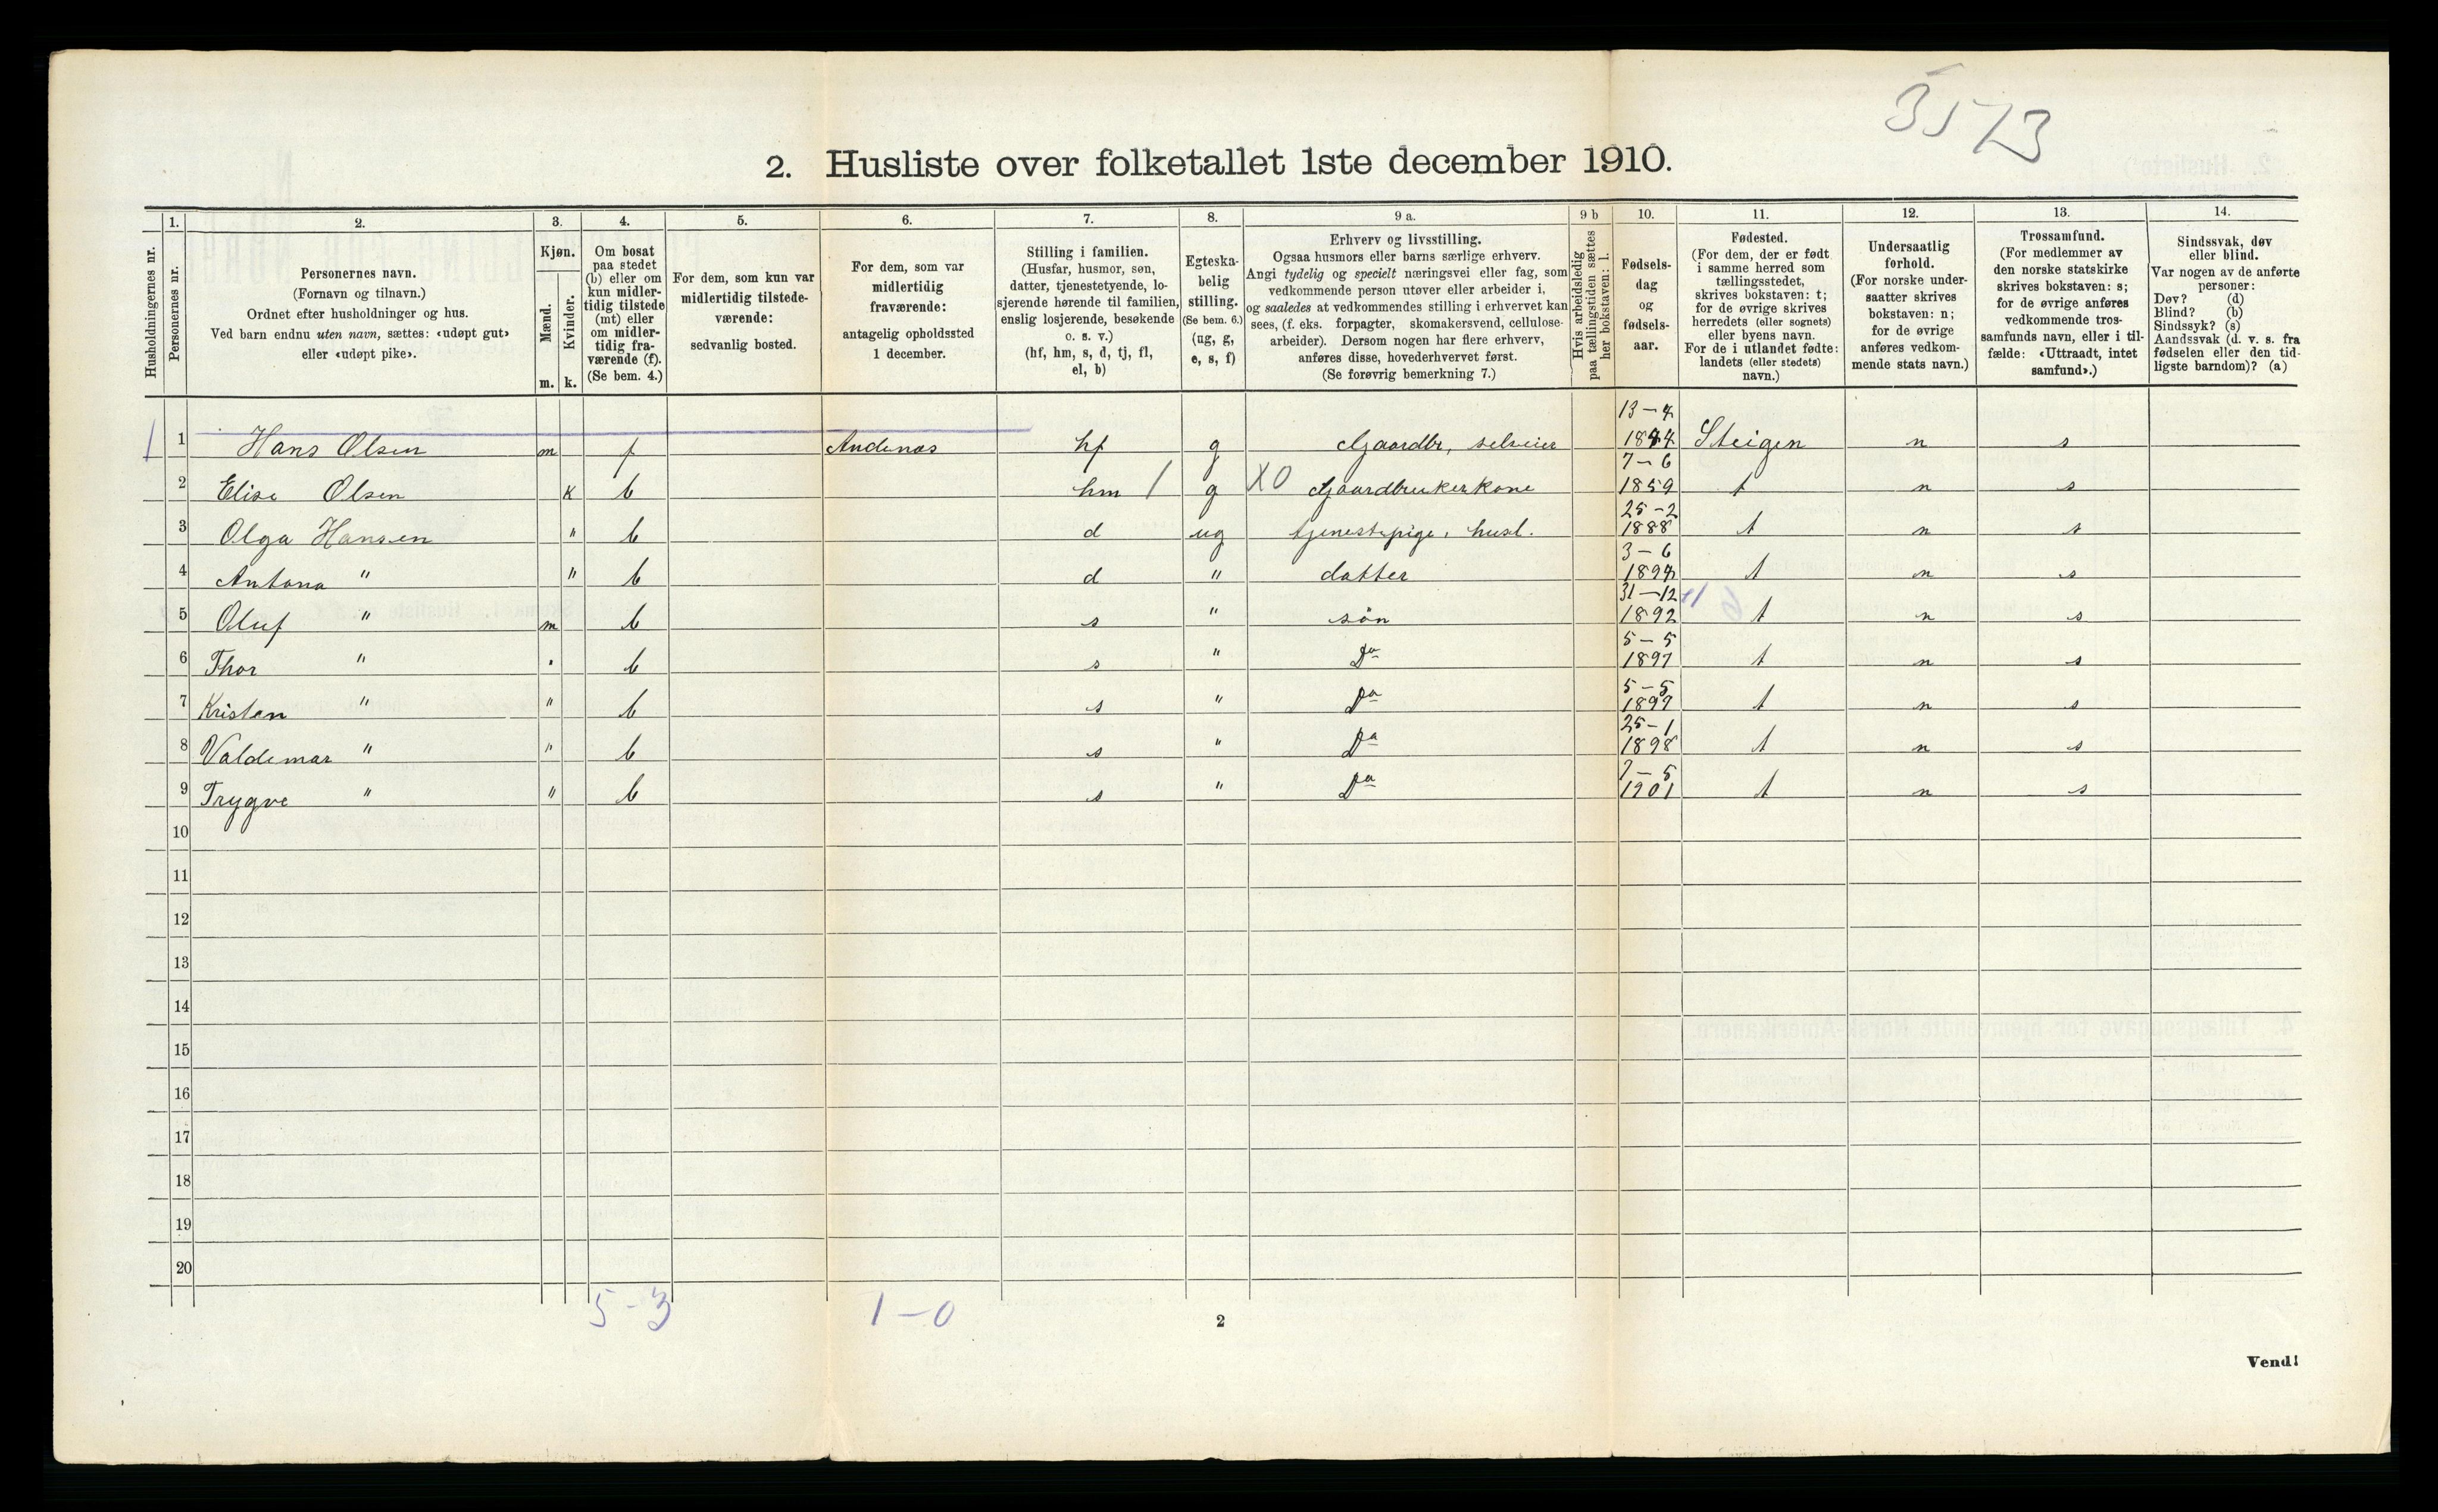 3573
2. Husliste over folketallet 1ste december 1910.
Husholdningernes nr.
1. Personernes nr.
2. Personernes navn.
(Fornavn og tilnavn.)
Ordnet efter husholdninger og hus.
Ved barn endnu uten navn, sættes: «udøpt gut»
eller «udøpt pike».
3. Kjøn.
Mænd. m.
Kvinder. k.
4. Om bosat
paa stedet
(b) eller om
kun midler-
tidig tilstede
(mt) eller
om midler-
tidig fra-
værende (f).
(Se bem. 4.)
5. For dem, som kun var
midlertidig tilstede-
værende:
sedvanlig bosted.
6. For dem, som var
midlertidig
fraværende:
antagelig opholdssted
1 december.
7. Stilling i familien.
(Husfar, husmor, søn,
datter, tjenestetyende, lo-
sjerende hørende til familien,
enslig losjerende, besøkende
o. s. v.)
(hf, hm, s, d, tj, fl,
el, b)
8. Egteska-
belig
stilling.
(Se bem. 6.)
(ug, g,
e, s, f)
9 a. Erhverv og livsstilling.
Ogsaa husmors eller barns særlige erhverv.
Angi tydelig og specielt næringsvei eller fag, som
vedkommende person utøver eller arbeider i,
og saaledes at vedkommendes stilling i erhvervet kan
sees, (f. eks. forpagter, skomakersvend, cellulose-
arbeider). Dersom nogen har flere erhverv,
anføres disse, hovederhvervet først.
(Se forøvrig bemerkning 7.)
9 b Hvis arbeidsledig
paa tællingstiden sættes
her bokstaven: l.
10. Fødsels-
dag
og
fødsels-
aar.
11. Fødested.
(For dem, der er født
i samme herred som
tællingsstedet,
skrives bokstaven: t;
for de øvrige skrives
herredets (eller sognets)
eller byens navn.
For de i utlandet fødte:
landets (eller stedets)
navn.)
12. Undersaatlig
forhold.
(For norske under-
saatter skrives
bokstaven: n;
for de øvrige
anføres vedkom-
mende stats navn.)
13. Trossamfund.
(For medlemmer av
den norske statskirke
skrives bokstaven: s;
for de øvrige anføres
vedkommende tros-
samfunds navn, eller i til-
fælde: «Uttraadt, intet
samfund».)
14. Sindssvak, døv
eller blind.
Var nogen av de anførte
personer:
Døv? (d)
Blind? (b)
Sindssyk? (s)
Aandssvak (d. v. s. fra
fødselen eller den tid-
ligste barndom)? (a)
1 1 Hans Olsen m f Andenæs hf g Gaardbr, selveier 13-4 Steigen n s
2 Elise Olsen k b hm 1 g X0 Gaardbrukerkone 7-6 1859 t n s
3 Olga Hansen " b d ug tjenestepige, husl. 25-2 1888 t n s
4 Antona " " b d " datter 3-6 t n s
5 Oluf " m b s " søn 31-12 1892 t n s
6 Thor " " b s " Do 5-5 1897 t n s
7 Kristen " " b s " Do 5-5 1897 t n s
8 Valdemar " " b s " Do 25-1 1898 t n s
9 Trygve " " b s " Do 7-5 1901 t n s
10
11
12
13
14
15
16
17
18
19
20
5-3 1-0
2
Vend!